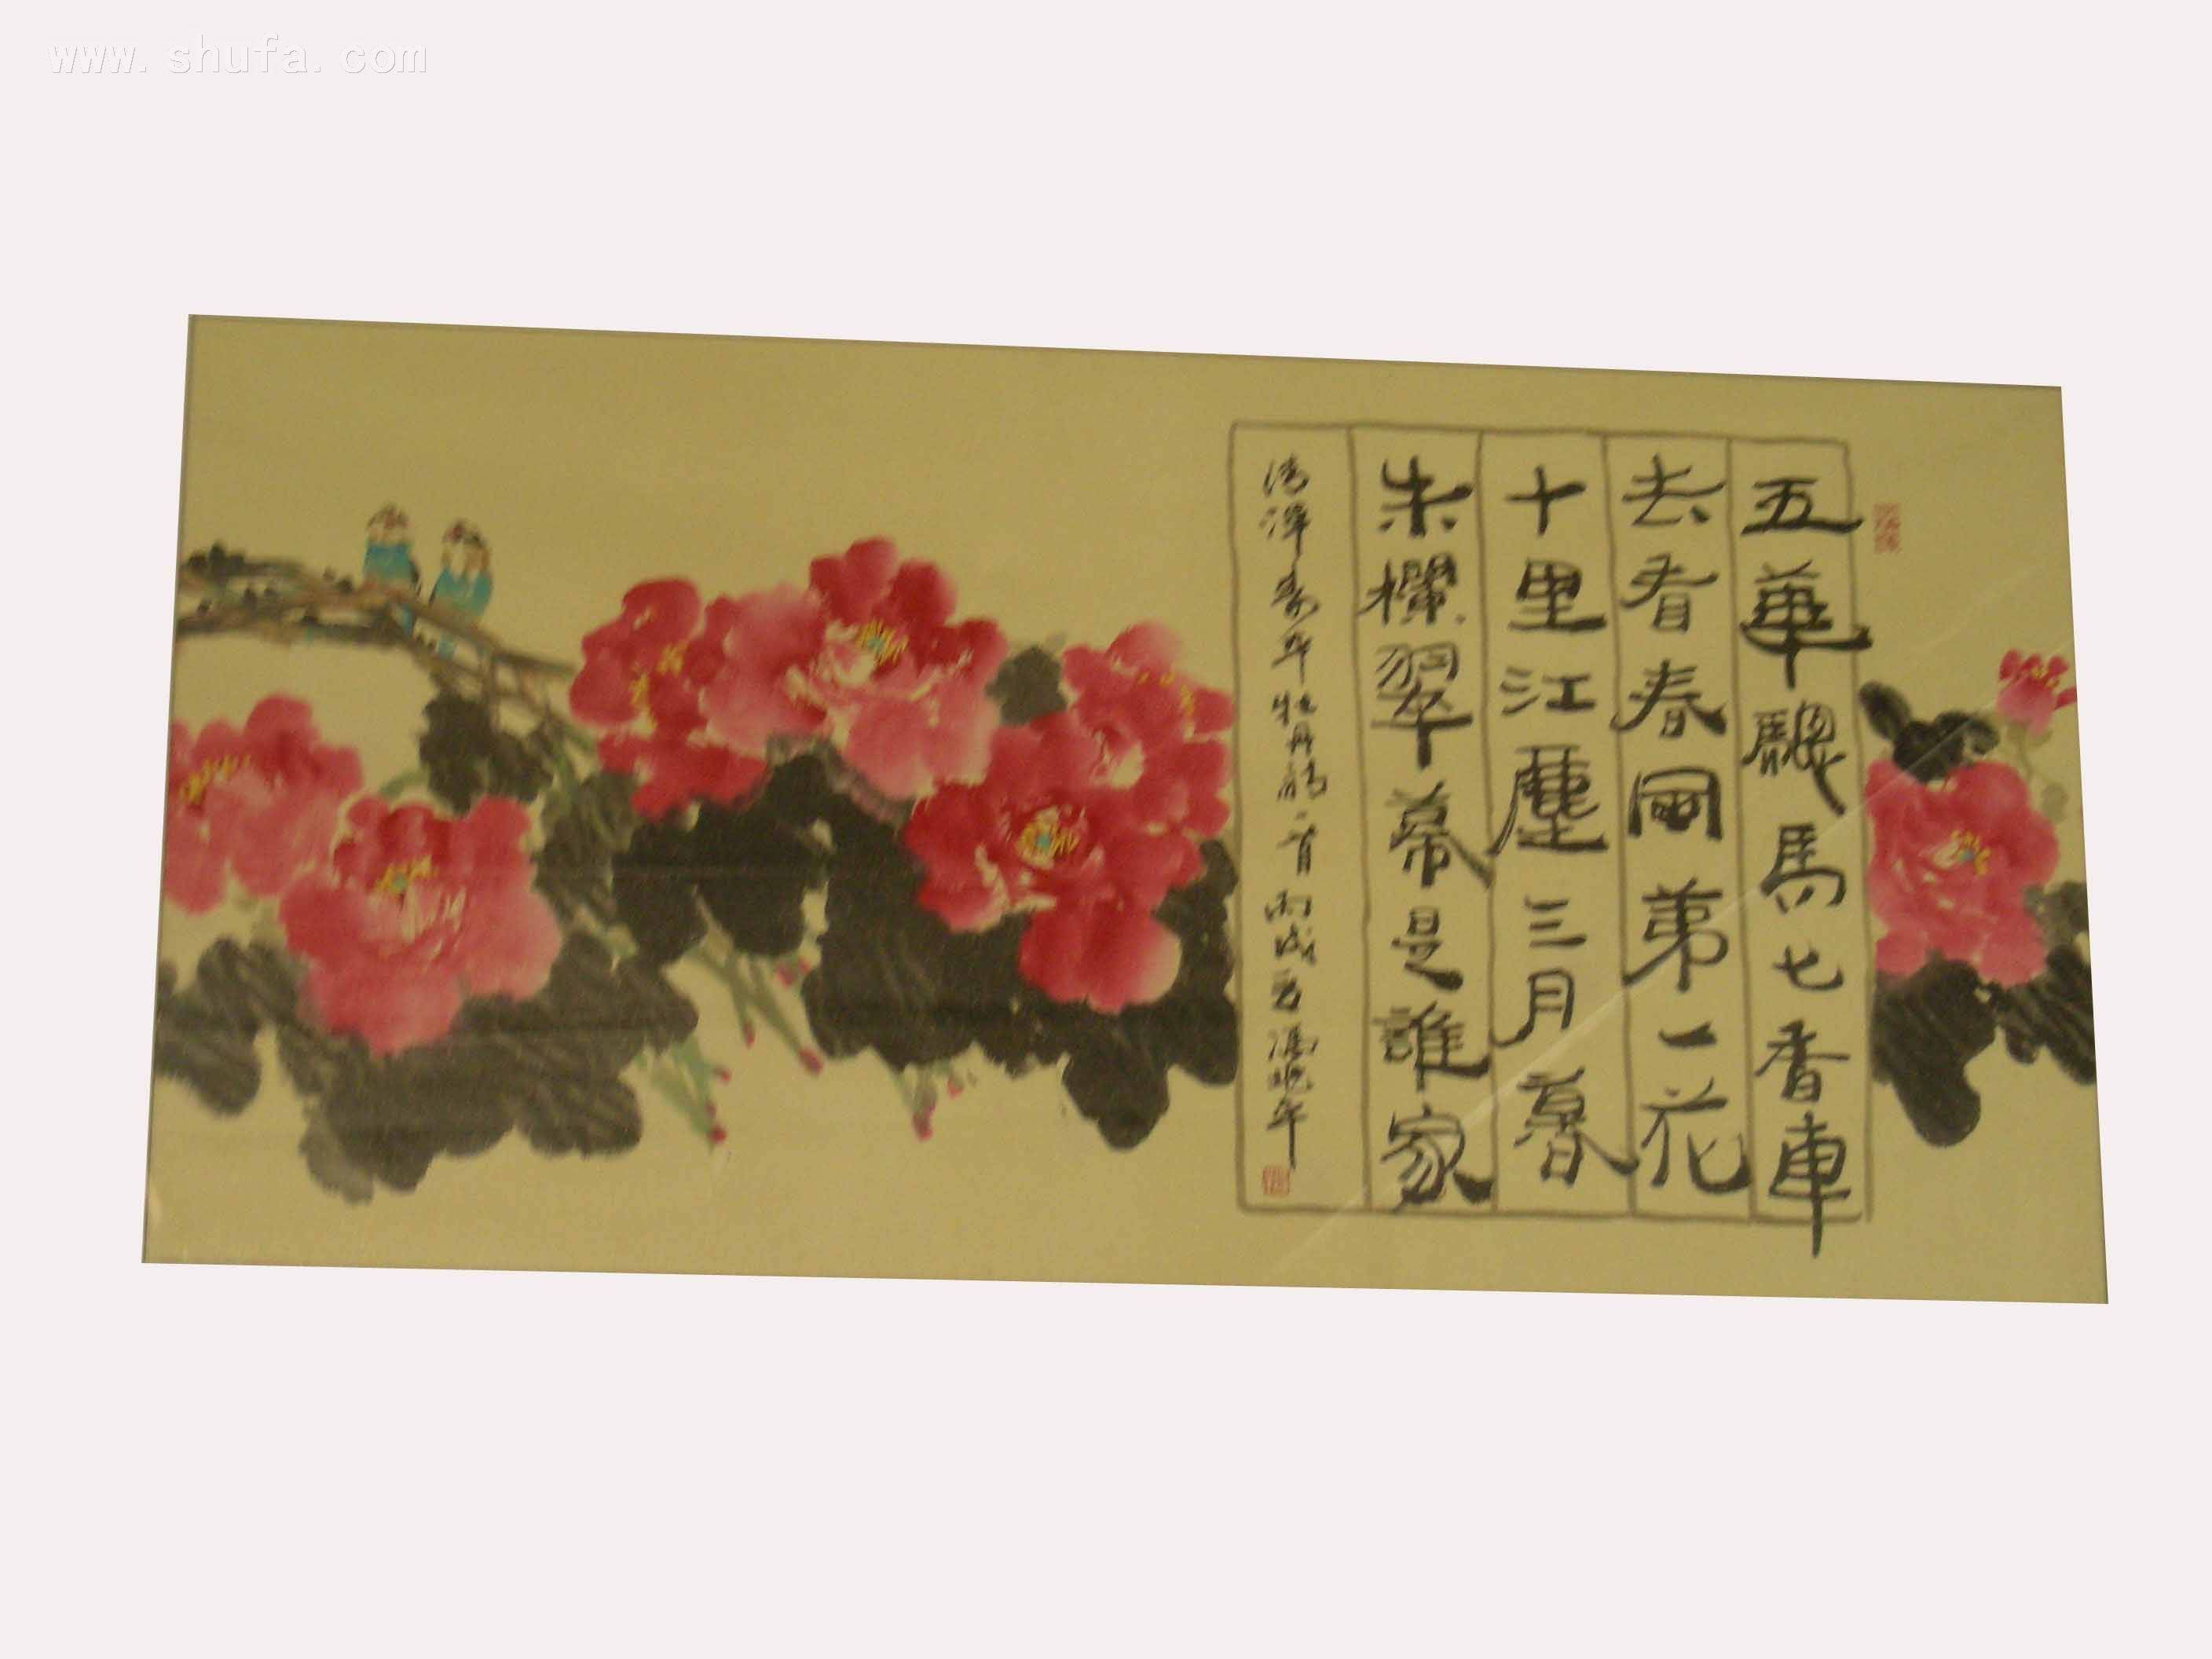 www.shufa.com
五華驄馬七香車
去看春園第一花
十里江塵三月暮
朱欄翠幕是誰家
清 壽平牡丹詩一首 丙戌 馮曉午